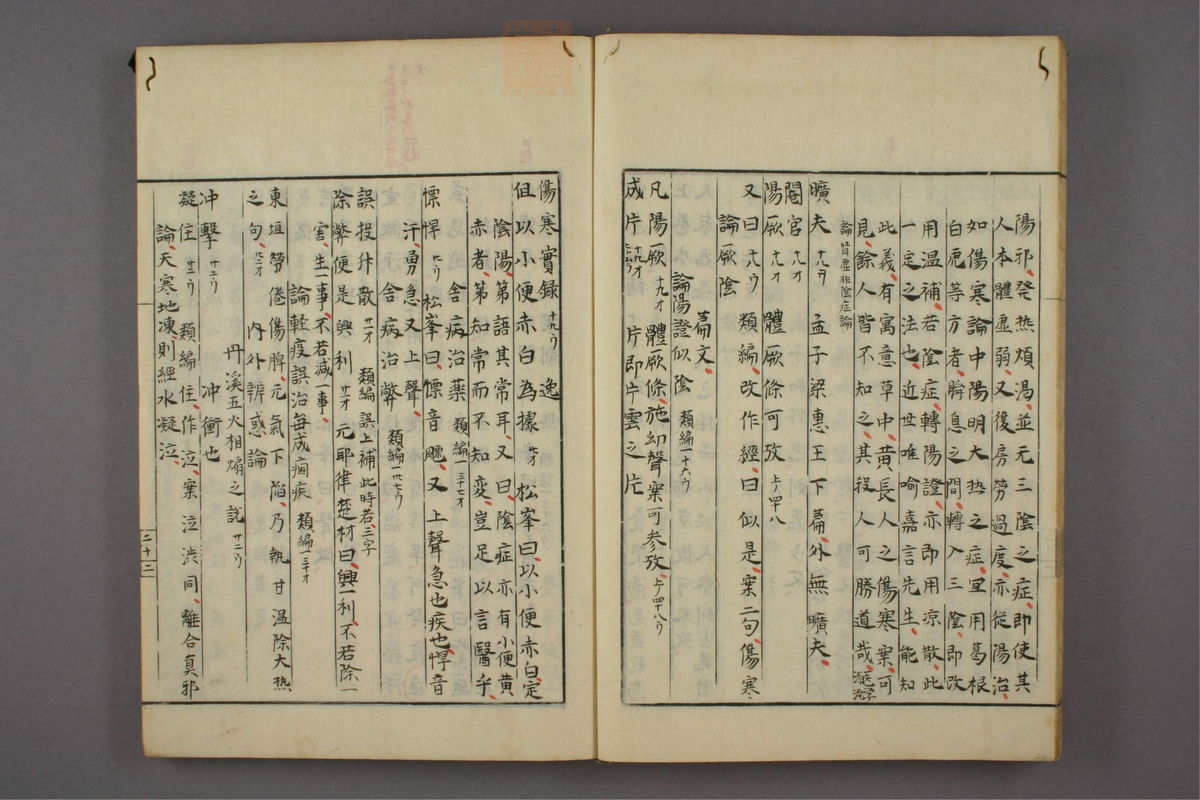 陽邪、発热煩渴、並无三陰之症、即使其
人本體虛弱、又後房勞過度、亦從陽治、
如傷寒論中陽明大热之症、宜用葛根
白虎等方者、瞬息之間、轉入三陰、即改
用溫補、若陰症、轉陽證、亦即用涼散、此
一定之法也、近世唯喻嘉言先生、能知
此義、有寓意草中、黃長人之傷寒案、可
見、餘人皆不知之、其殺人可勝道哉、
論腎虛非陰症論
曠夫 十八ウ 孟子梁惠王下篇、外無曠夫、
閹官 十九才
陽厥 十九才 體厥條可攷 上ノ四十八
又曰 十九ウ 類編、改作經、曰似是、案二句、傷寒
論厥陰
篇文、
論陽證似陰 類編一十六ウ
凡陽厥 十九才 體厥條、施幼聲案可參攷、上ノ四十八ウ
成片 十九才 片即片雲之片
傷寒實録 十九ウ 逸
但以小便赤白為據 廿才 松峯曰、以小便赤白、定
陰陽、第語其常耳、又曰、陰症亦有小便黃
赤者、第知常而不知変、豈足以言醫乎、
舍病治藥 類編一三十七才
慓悍 廿ウ 松峯曰、慓音飃、又上聲、急也疾也、悍音
汗、勇急又上聲、
舍病治弊 類編一卅七ウ
誤投升散 廿一才 類編誤上補此時若、三字
除弊便是興利 廿一才 元耶律楚材曰、興一利、不若除一
害、生一事、不若減一事
論輊疫誤治每成痼疾 類編一三十才
東垣勞倦傷脾、元氣下陷、乃執甘溫除大热
之句、廿二才 內外辨惑論
丹溪五火相煽之說 廿二ウ
冲擊 廿二ウ 冲衝也
凝住 廿三ウ 類編住、作泣、案泣渋同、離合真邪
論、天寒地凍、則經水凝泣、
二十二